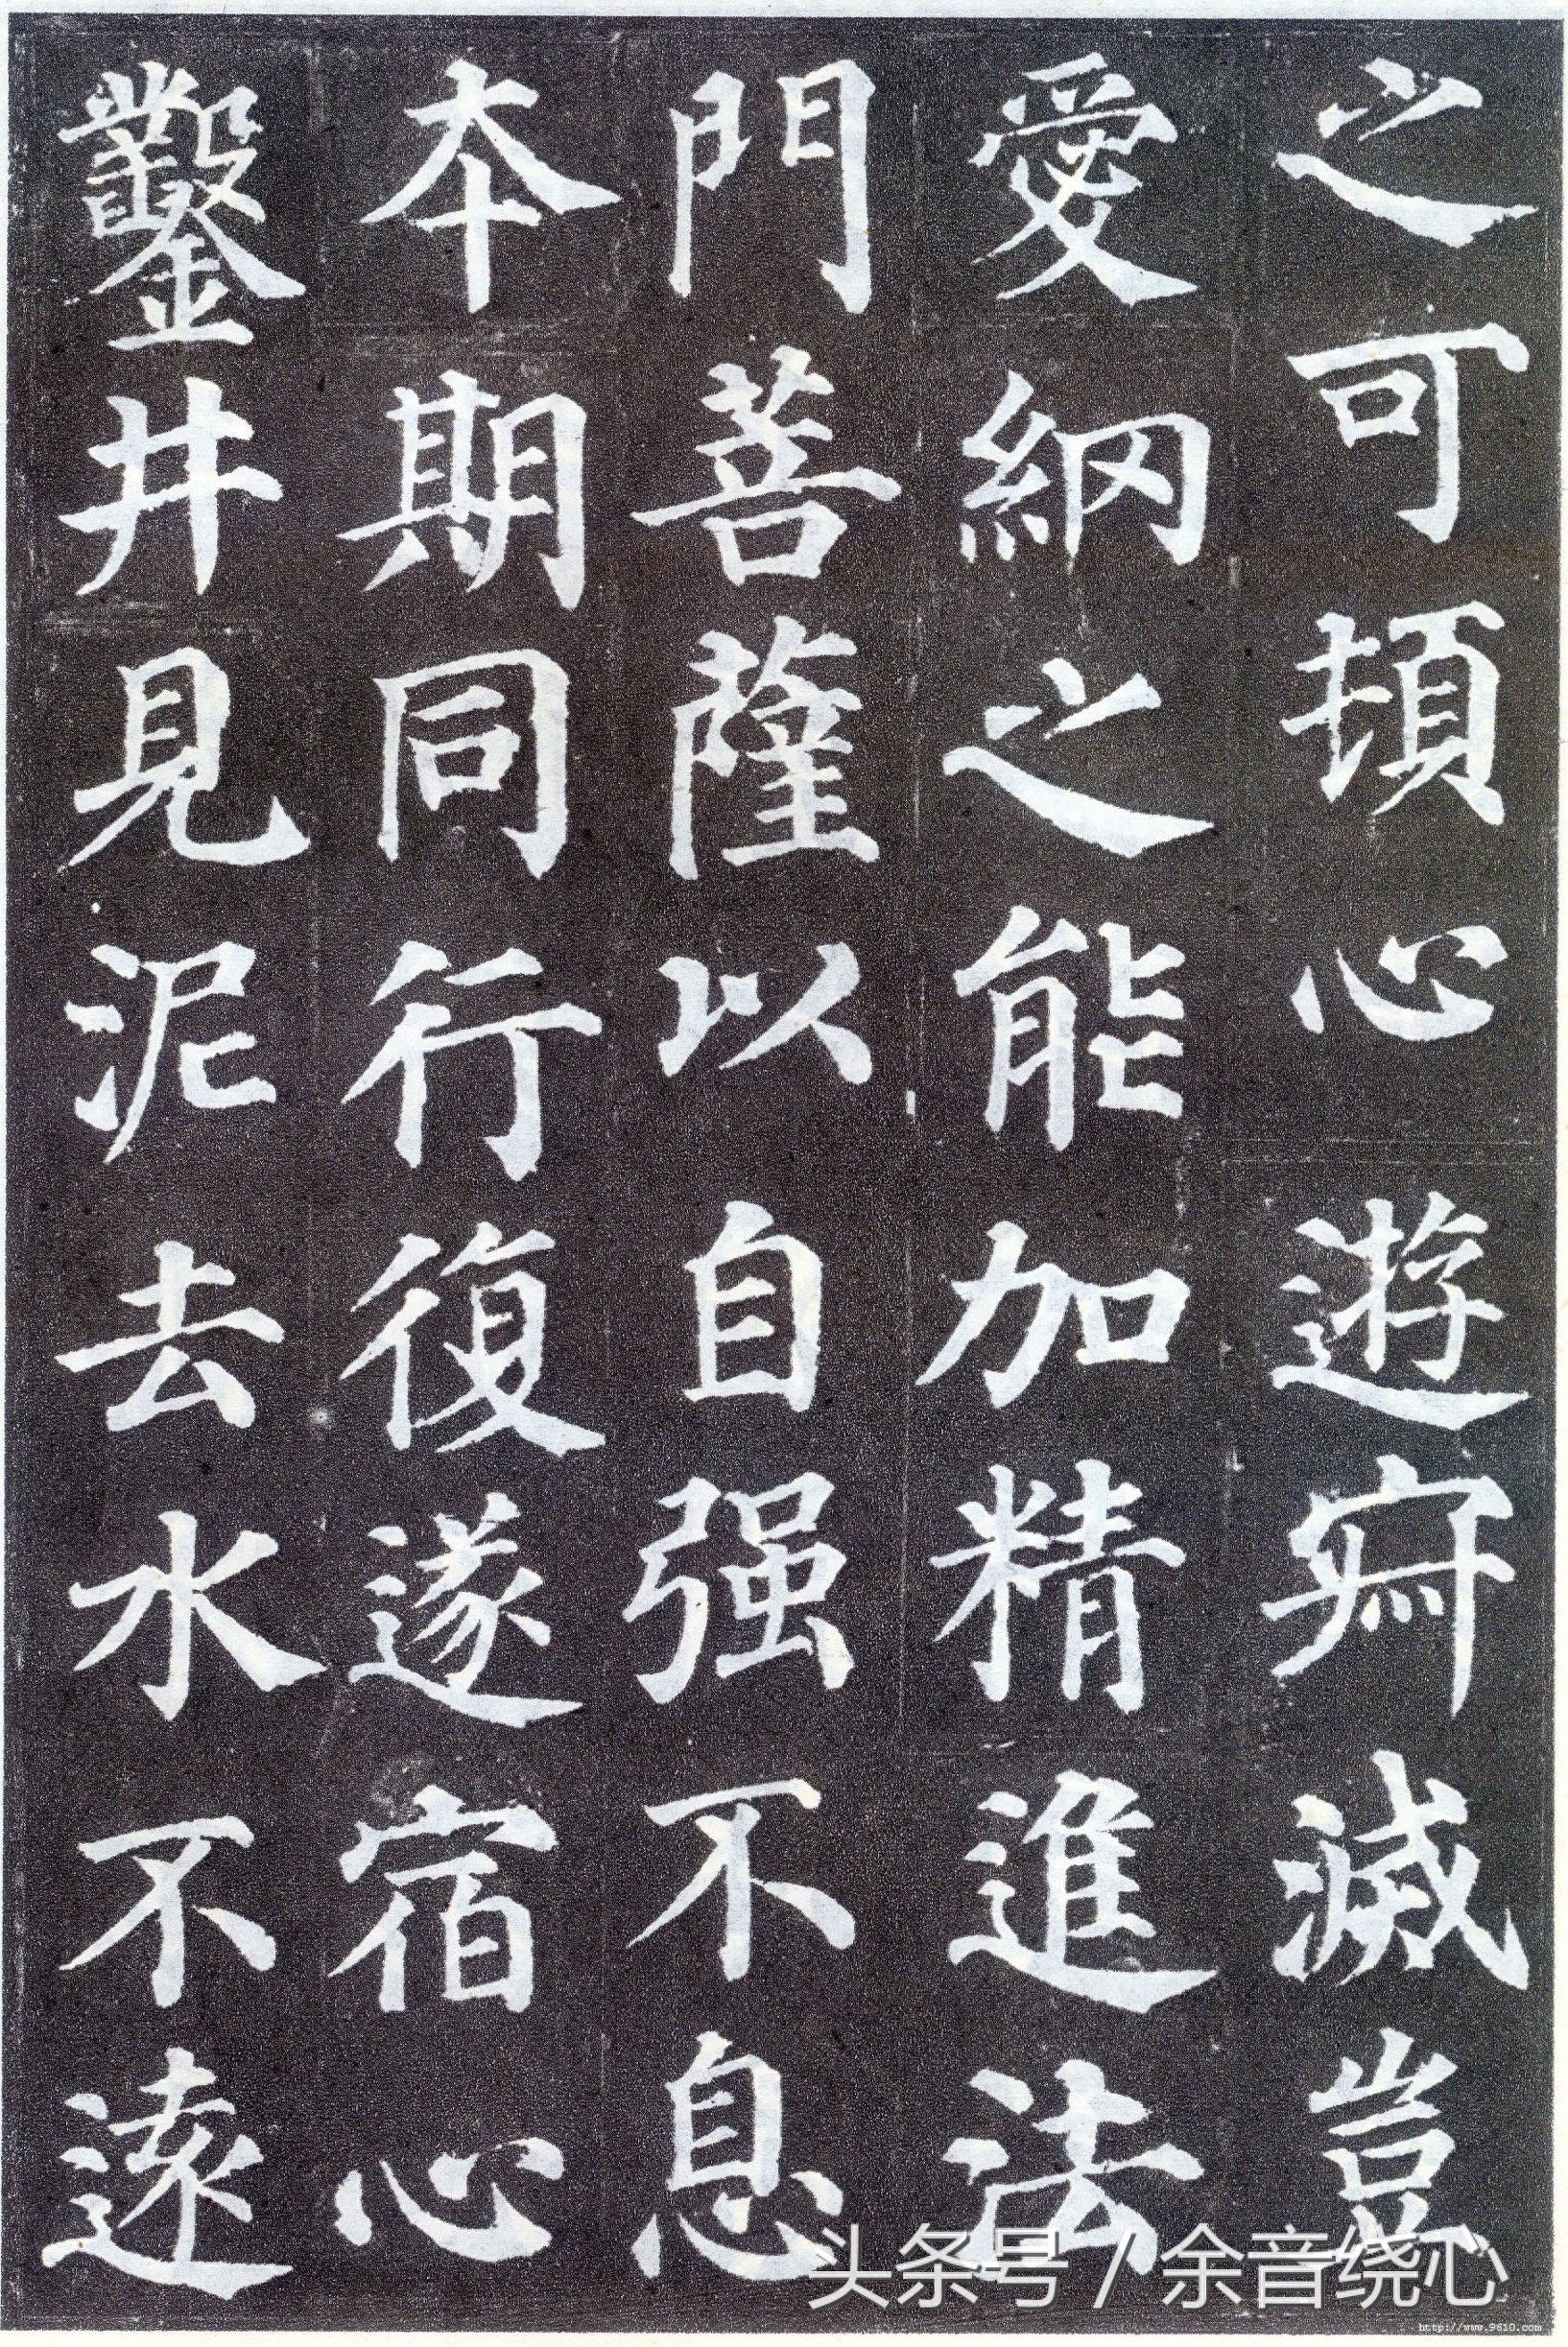 之可頓心遊寂滅豈
愛網之能加精進法
門菩薩以自强不息
本期同行復遂宿心
鑿井見泥去水不遠
头条号 / 余音绕心
http://www.9610.com